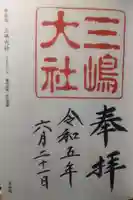 奉拝
三嶋
大社
令和五年
六月二十一日